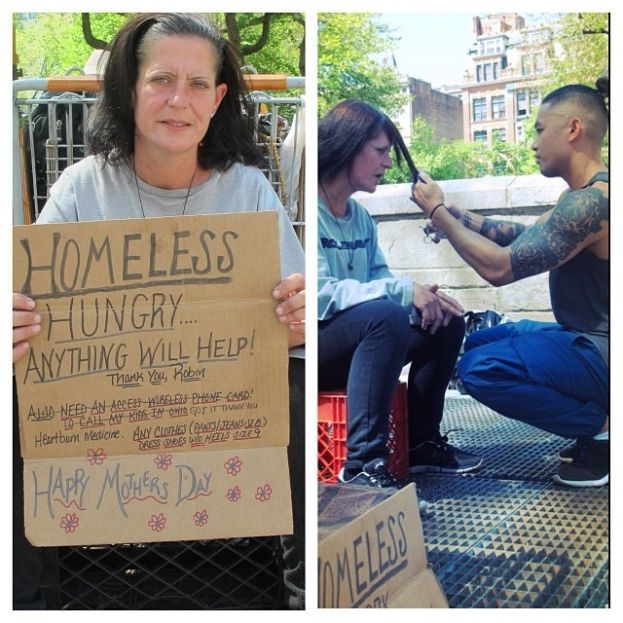 HOMELESS
HUNGRY....
ANYTHING WILL HELP!
Thank You, Robin
ALSO NEED AN ACCESS WIRELESS PHONE CARD!
TO CALL MY KIDS IN OHIO GOT IT THANK YOU
Heartburn Medicine. ANY CLOTHES (PANTS/JEANS
DRESS SHOES W/O HEELS SIZE 9
HAPPY MOTHERS DAY
HOMELESS